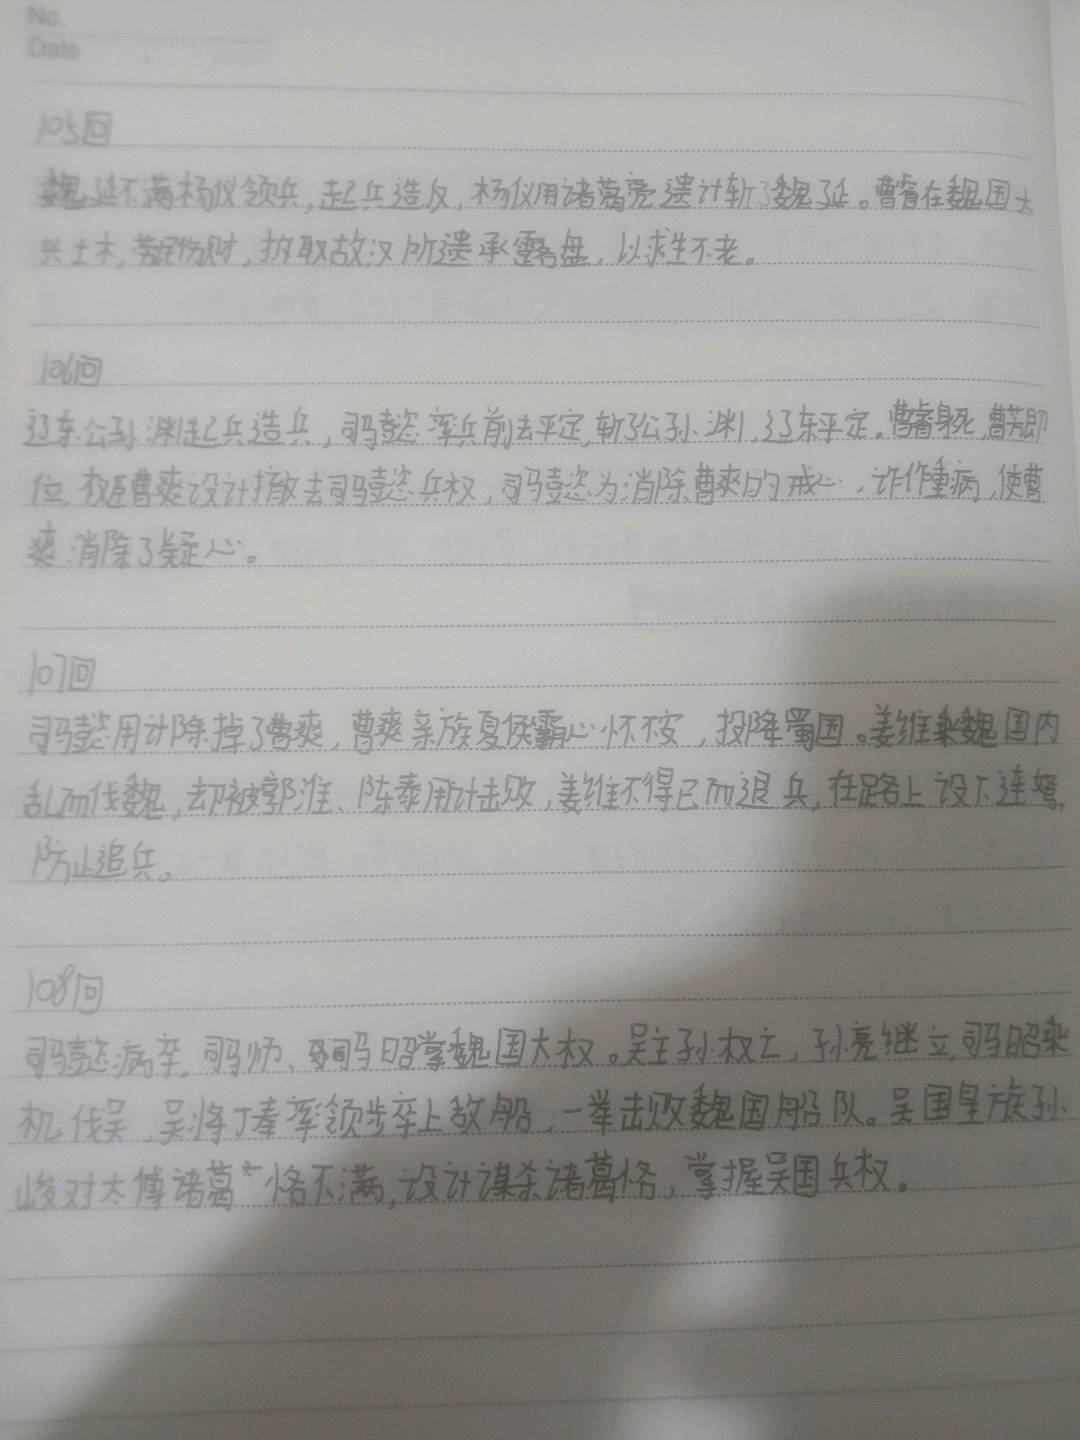 No.
Date
105回
魏延不满杨仪领兵,起兵造反,杨仪用诸葛亮遗计斩了魏延。曹睿在魏国大
兴土木,劳民伤财,拆取故汉所遗承露盘,以求生不老。
106回
辽东公孙渊起兵造兵,司马懿率兵前去平定,斩了公孙渊,辽东平定。曹睿身死,曹芳即
位,权臣曹爽设计撤去司马懿兵权,司马懿为消除曹爽的戒心,诈作重病,使曹
爽消除了疑心。
107回
司马懿用计除掉了曹爽,曹爽亲族夏侯霸心怀不安,投降蜀国。姜维乘魏国内
乱而伐魏,却被郭淮、陈泰用计击败,姜维不得已而退兵,在路上设下连弩,
防止追兵。
108回
司马懿病卒,司马师、司马昭掌魏国大权。吴主孙权亡,孙亮继立,司马昭乘
机伐吴,吴将丁奉率领步卒上敌船,一举击败魏国船队。吴国皇族孙
峻对太傅诸葛恪不满,设计谋杀诸葛恪,掌握吴国兵权。